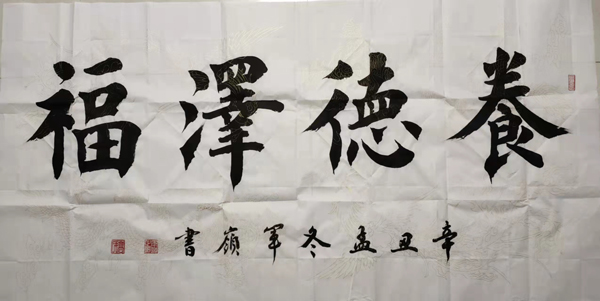 養德澤福
辛丑孟冬军嶺書